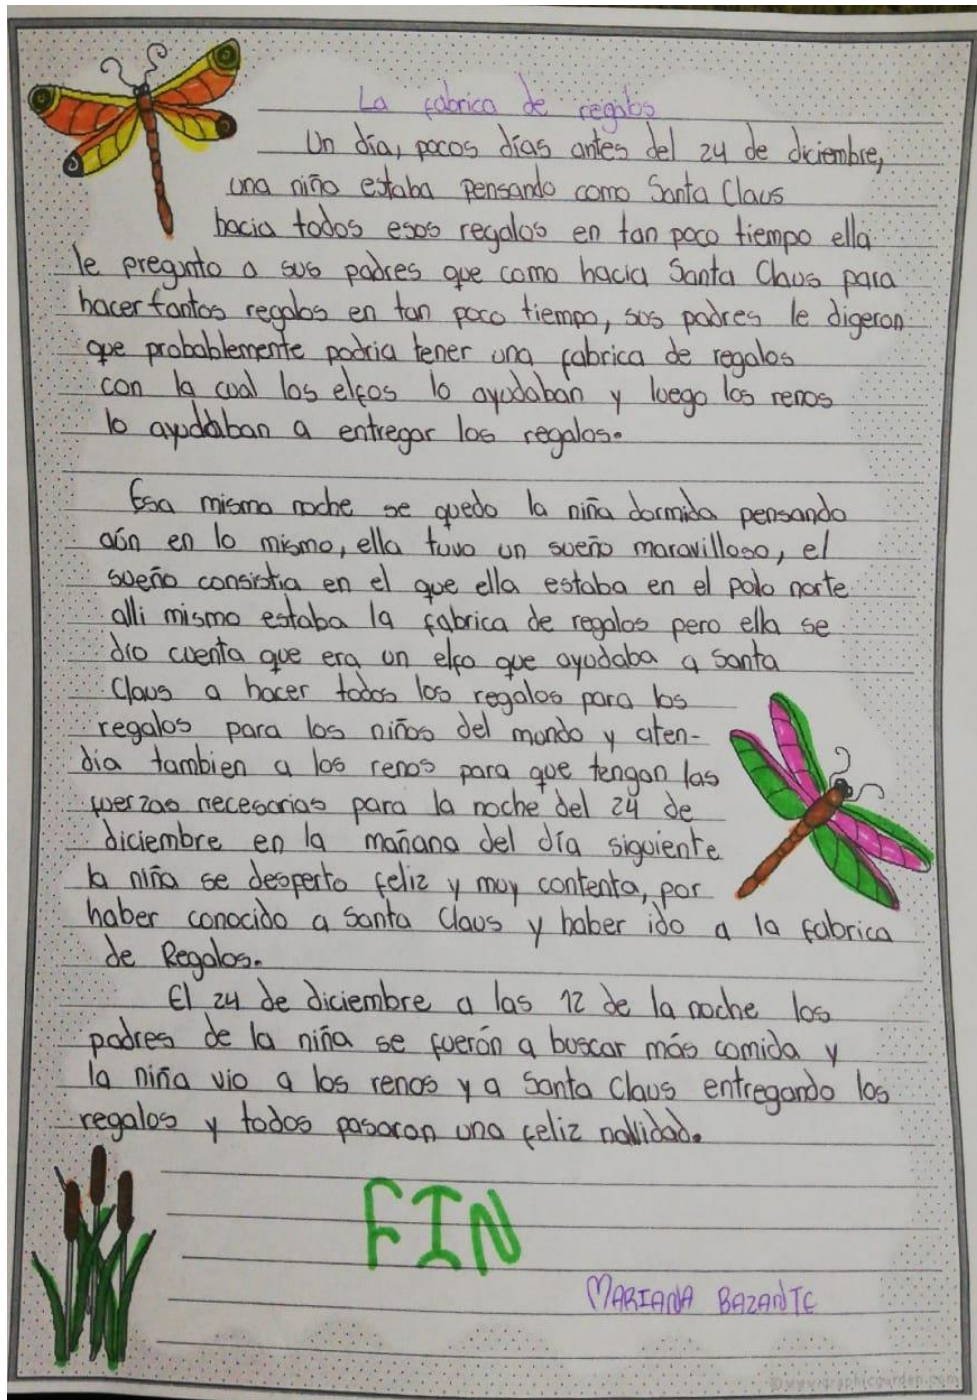 La fabrica de regalos
Un día, pocos días antes del 24 de diciembre,
una niño estaba pensando como Santa Claus
hacia todos esos regalos en tan poco tiempo ella
le pregunto a sus padres que como hacia Santa Claus para
hacer tantos regalos en tan poco tiempo, sus padres le digeron
que probablemente podria tener una fabrica de regalos
con la cual los elfos lo ayudaban y luego los renos
lo ayudaban a entregar los regalos.
Esa misma noche se quedo la niña dormida pensando
aún en lo mismo, ella tuvo un sueño maravilloso, el
sueño consistia en el que ella estaba en el polo norte
alli mismo estaba la fabrica de regalos pero ella se
dio cuenta que era un elfo que ayudaba a Santa
Claus a hacer todos los regalos para los
regalos para los niños del mundo y aten-
dia tambien a los renos para que tengan las
fuerzas necesarias para la noche del 24 de
diciembre en la mañana del día siguiente
la niña se desperto feliz y muy contenta, por
haber conocido a Santa Claus y haber ido a la fabrica
de Regalos.
El 24 de diciembre a las 12 de la noche los
padres de la niña se fuerón a buscar más comida y
la niña vio a los renos y a Santa Claus entregando los
regalos y todos pasaron una feliz navidad.
FIN
MARIANA BAZANTE